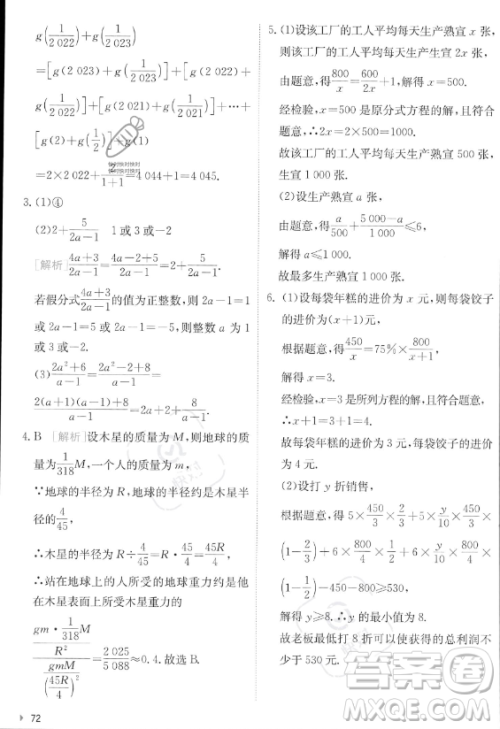 g(1/2 022)+g(1/2 023)
=[g(2 023)+g(1/2 023)]+[g(2 022)+
g(1/2 022)]+[g(2 021)+g(1/2 021)]+…+
[g(2)+g(1/2)]+g(1)
=2×2 022+1/(1+1)=4 044+1=4 045.
3. (1)④
(2)2+5/(2a-1) 1或3或-2
[解析] (4a+3)/(2a-1)=(4a-2+5)/(2a-1)=2+5/(2a-1),
若假分式(4a+3)/(2a-1)的值为正整数,则2a-1=1或
2a-1=5或2a-1=-5,所以整数a为1或3
或-2.
(3)(2a²+6)/(a-1)=(2a²-2+8)/(a-1)=
(2(a+1)(a-1)+8)/(a-1)=2a+2+8/(a-1).
4. B [解析] 设木星的质量为M,则地球的质量
为1/318 M,一个人的质量为m,
∵地球的半径为R,地球的半径约是木星半径的
4/45,
∴木星的半径为R÷4/45=R·45/4=45R/4,
∴站在地球上的人所受的地球重力约是他
在木星表面上所受木星重力的
(gm·1/318 M/R²)/(gmM/(45R/4)²)=2 025/5 088≈0.4.故选B.
72
5. (1)设该工厂的工人平均每天生产熟宣x张,
则该工厂的工人平均每天生产生宣2x张,
由题意,得800/x=600/2x+1,解得x=500.
经检验,x=500是原分式方程的解,且符合
题意,∴2x=2×500=1 000.
故该工厂的工人平均每天生产熟宣500张,
生宣1 000张.
(2)设生产熟宣a张,
由题意,得a/500+(5 000-a)/1 000≤6,
解得a≤1 000.
故最多生产熟宣1 000张.
6. (1)设每袋年糕的进价为x元,则每袋饺子
的进价为(x+1)元,
根据题意,得450/x=75%×800/(x+1),
解得x=3.
经检验,x=3是所列方程的解,且符合题意,
∴x+1=4.
故每袋年糕的进价为3元,每袋饺子的进价
为4元.
(2)设打y折销售,
根据题意,得5×450/3×2/3+5×y/10×450/3×
(1-2/3)+6×800/4×2/3+6×y/10×800/4×
(1-2/3)-450-800≥530,
解得y≥8.∴y的最小值为8.
故老板最低打8折可以使得总利润不少
于530元.
答案圈
MXQE.COM